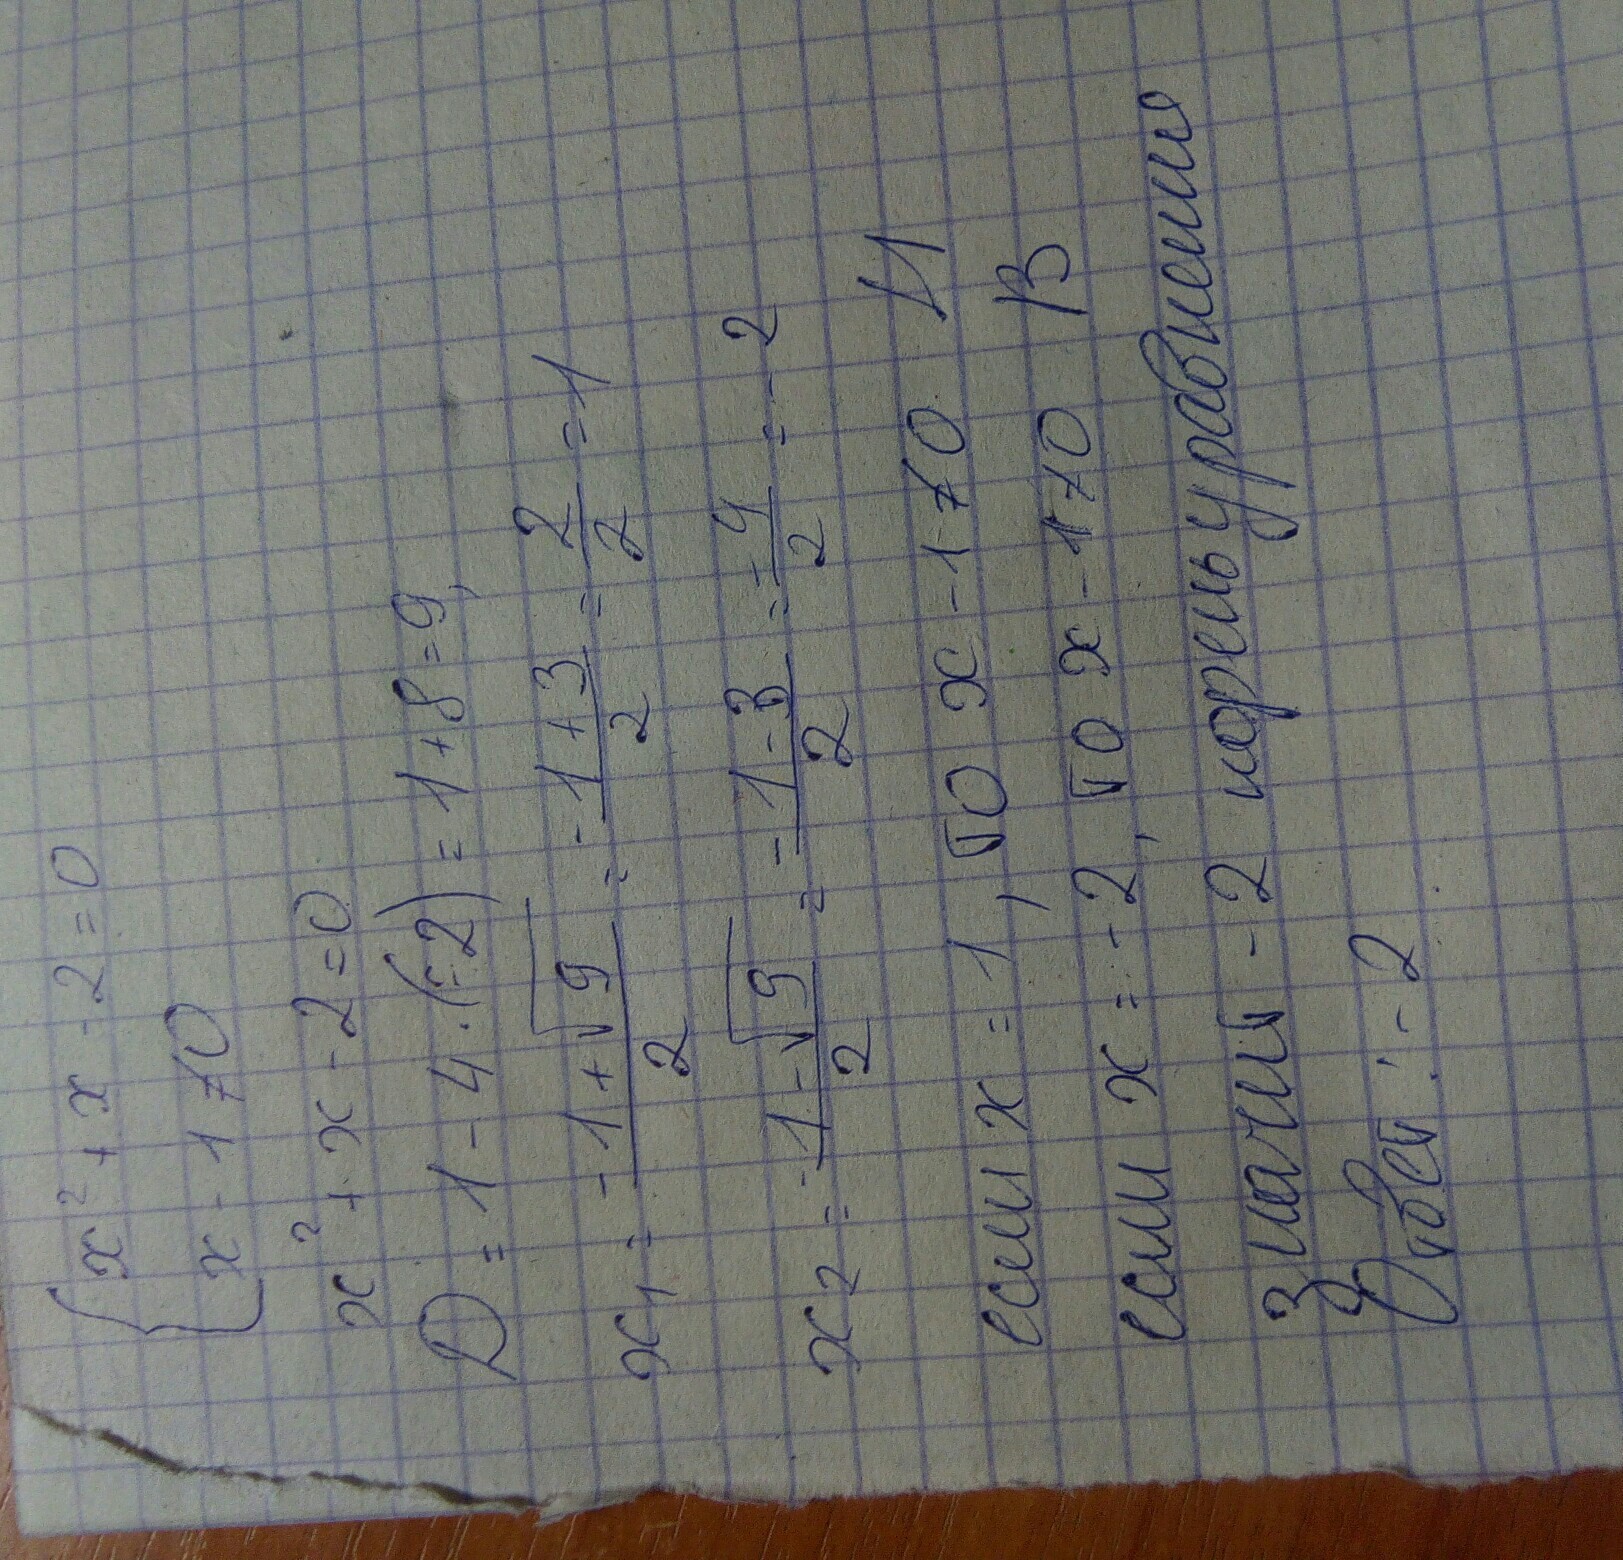 { x² + x - 2 = 0
x - 1 ≠ 0
x² + x - 2 = 0
D = 1 - 4 · (-2) = 1 + 8 = 9,
x₁ = (-1 + √9)/2 = (-1 + 3)/2 = 2/2 = 1
x₂ = (-1 - √9)/2 = (-1 - 3)/2 = (-4)/2 = -2
если x = 1, то x - 1 ≠ 0 И
если x = -2, то x - 1 ≠ 0 В
Значит -2 корень уравнения
Ответ: -2